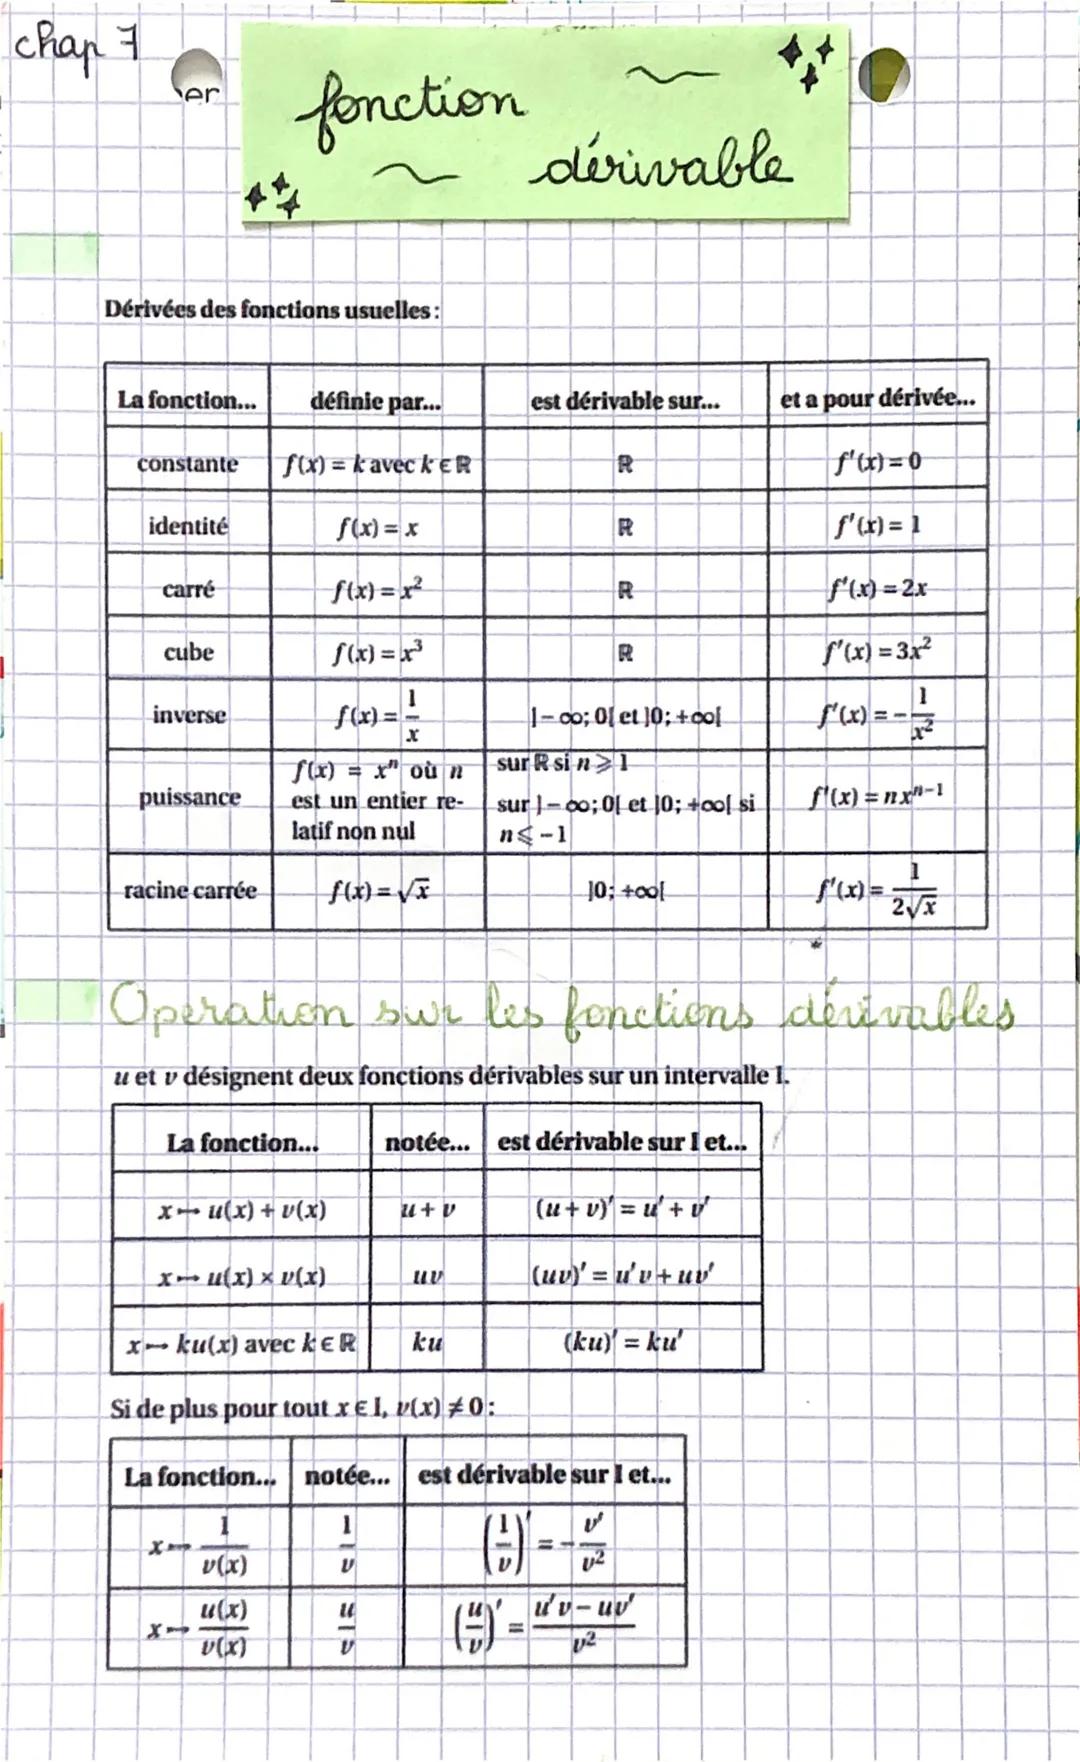 chap 7
er
fonction
dérivable
Dérivées des fonctions usuelles :
La fonction... définie par... est dérivable sur... et a pour dérivée...
constante f(x) = k avec k ∈ ℝ ℝ f'(x) = 0
identité f(x) = x ℝ f'(x) = 1
carré f(x) = x² ℝ f'(x) = 2x
cube f(x) = x³ ℝ f'(x) = 3x²
inverse f(x) = 1/x ]−∞; 0[ et ]0; +∞[ f'(x) = −1/x²
puissance f(x) = xⁿ où n est un entier re- latif non nul sur ℝ si n ⩾ 1 sur ]−∞; 0[ et ]0; +∞[ si n ⩽ −1 f'(x) = nxⁿ⁻¹
racine carrée f(x) = √x ]0; +∞[ f'(x) = 1/(2√x)
*
Operation sur les fonctions dérivables
u et v désignent deux fonctions dérivables sur un intervalle I.
La fonction... notée... est dérivable sur I et...
x ↦ u(x) + v(x) u + v (u + v)' = u' + v'
x ↦ u(x) × v(x) uv (uv)' = u'v + uv'
x ↦ ku(x) avec k ∈ ℝ ku (ku)' = ku'
Si de plus pour tout x ∈ I, v(x) ≠ 0 :
La fonction... notée... est dérivable sur I et...
x ↦ 1/v(x) 1/v (1/v)' = −v'/v²
x ↦ u(x)/v(x) u/v (u/v)' = (u'v − uv')/v²